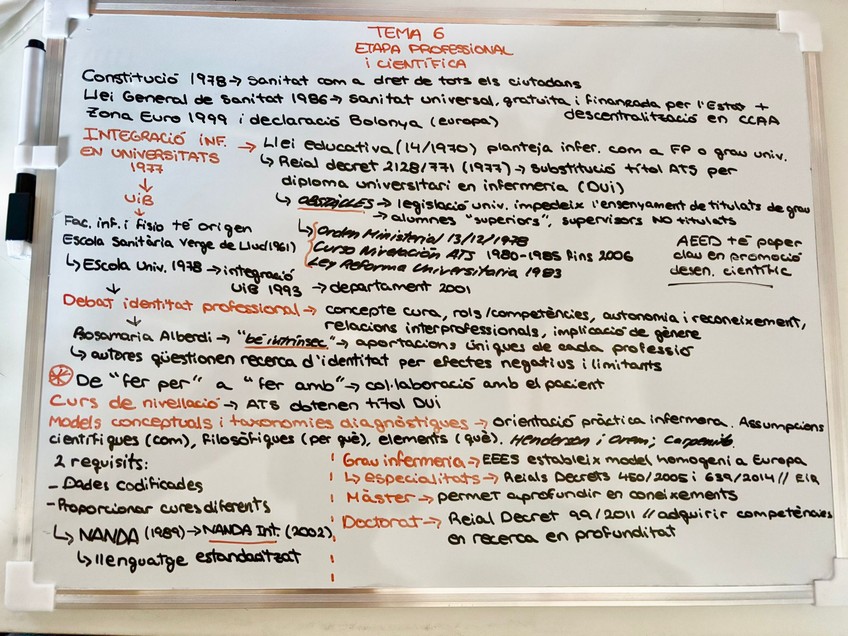 TEMA 6
ETAPA PROFESSIONAL
i CIENTÍFICA
Constitució 1978 → Sanitat com a dret de tots els ciutadans
Llei General de Sanitat 1986 → sanitat universal, gratuita i finançada per l'Estat +
descentralització en CCAA
Zona Euro 1999 i declaració Bolonya (europa)
INTEGRACIÓ INF.
EN UNIVERSITATS
1977
→ Llei educativa (14/1970) planteja infer. com a FP o grau univ.
↳ Reial decret 2128/771 (1977) → substitució títol ATS per
diploma universitari en infermeria (DUi)
↳ OBSTACLES → legislació univ. impedeix l'ensenyament de titulats de grau
→ alumnes "superiors", supervisors NO titulats
↳ Orden Ministerial 13/12/1978
Curso Nivelación ATS 1980-1985 fins 2006
Ley Reforma Universitaria 1983
AEED té paper
clau en promoció
desen. científic
↓
UiB
↓
Fac. inf. i fisio té origen
Escola Sanitària Verge de Lluc (1961)
↳ Escola Univ. 1978 → integració
UiB 1993 → departament 2001
↓
Debat identitat professional → concepte cura, rols/competències, autonomia i reconeixement,
relacions interprofessionals, implicació de gènere
↓
Rosamaria Alberdi → "bé intrínsec" → aportacions úniques de cada professió
↳ autores qüestionen recerca d'identitat per efectes negatius i limitants
De "fer per" a "fer amb" → col·laboració amb el pacient
Curs de nivellació → ATS obtenen títol DUi
Models conceptuals i taxonomies diagnòstiques → orientació pràctica infermera. Assumpcions
científiques (com), filosòfiques (per què), elements (què). Henderson i Orem; Carpenito.
2 requisits:
- Dades codificades
- Proporcionar cures diferents
↳ NANDA (1989) → NANDA Int. (2002)
↳ llenguatge estandaritzat
Grau infermeria → EEES estableix model homogeni a Europa
↳ especialitats → Reials Decrets 450/2005 i 639/2014 // EIR
Màster → permet aprofundir en coneixements
Doctorat → Reial Decret 99/2011 // adquirir competències
en recerca en profunditat